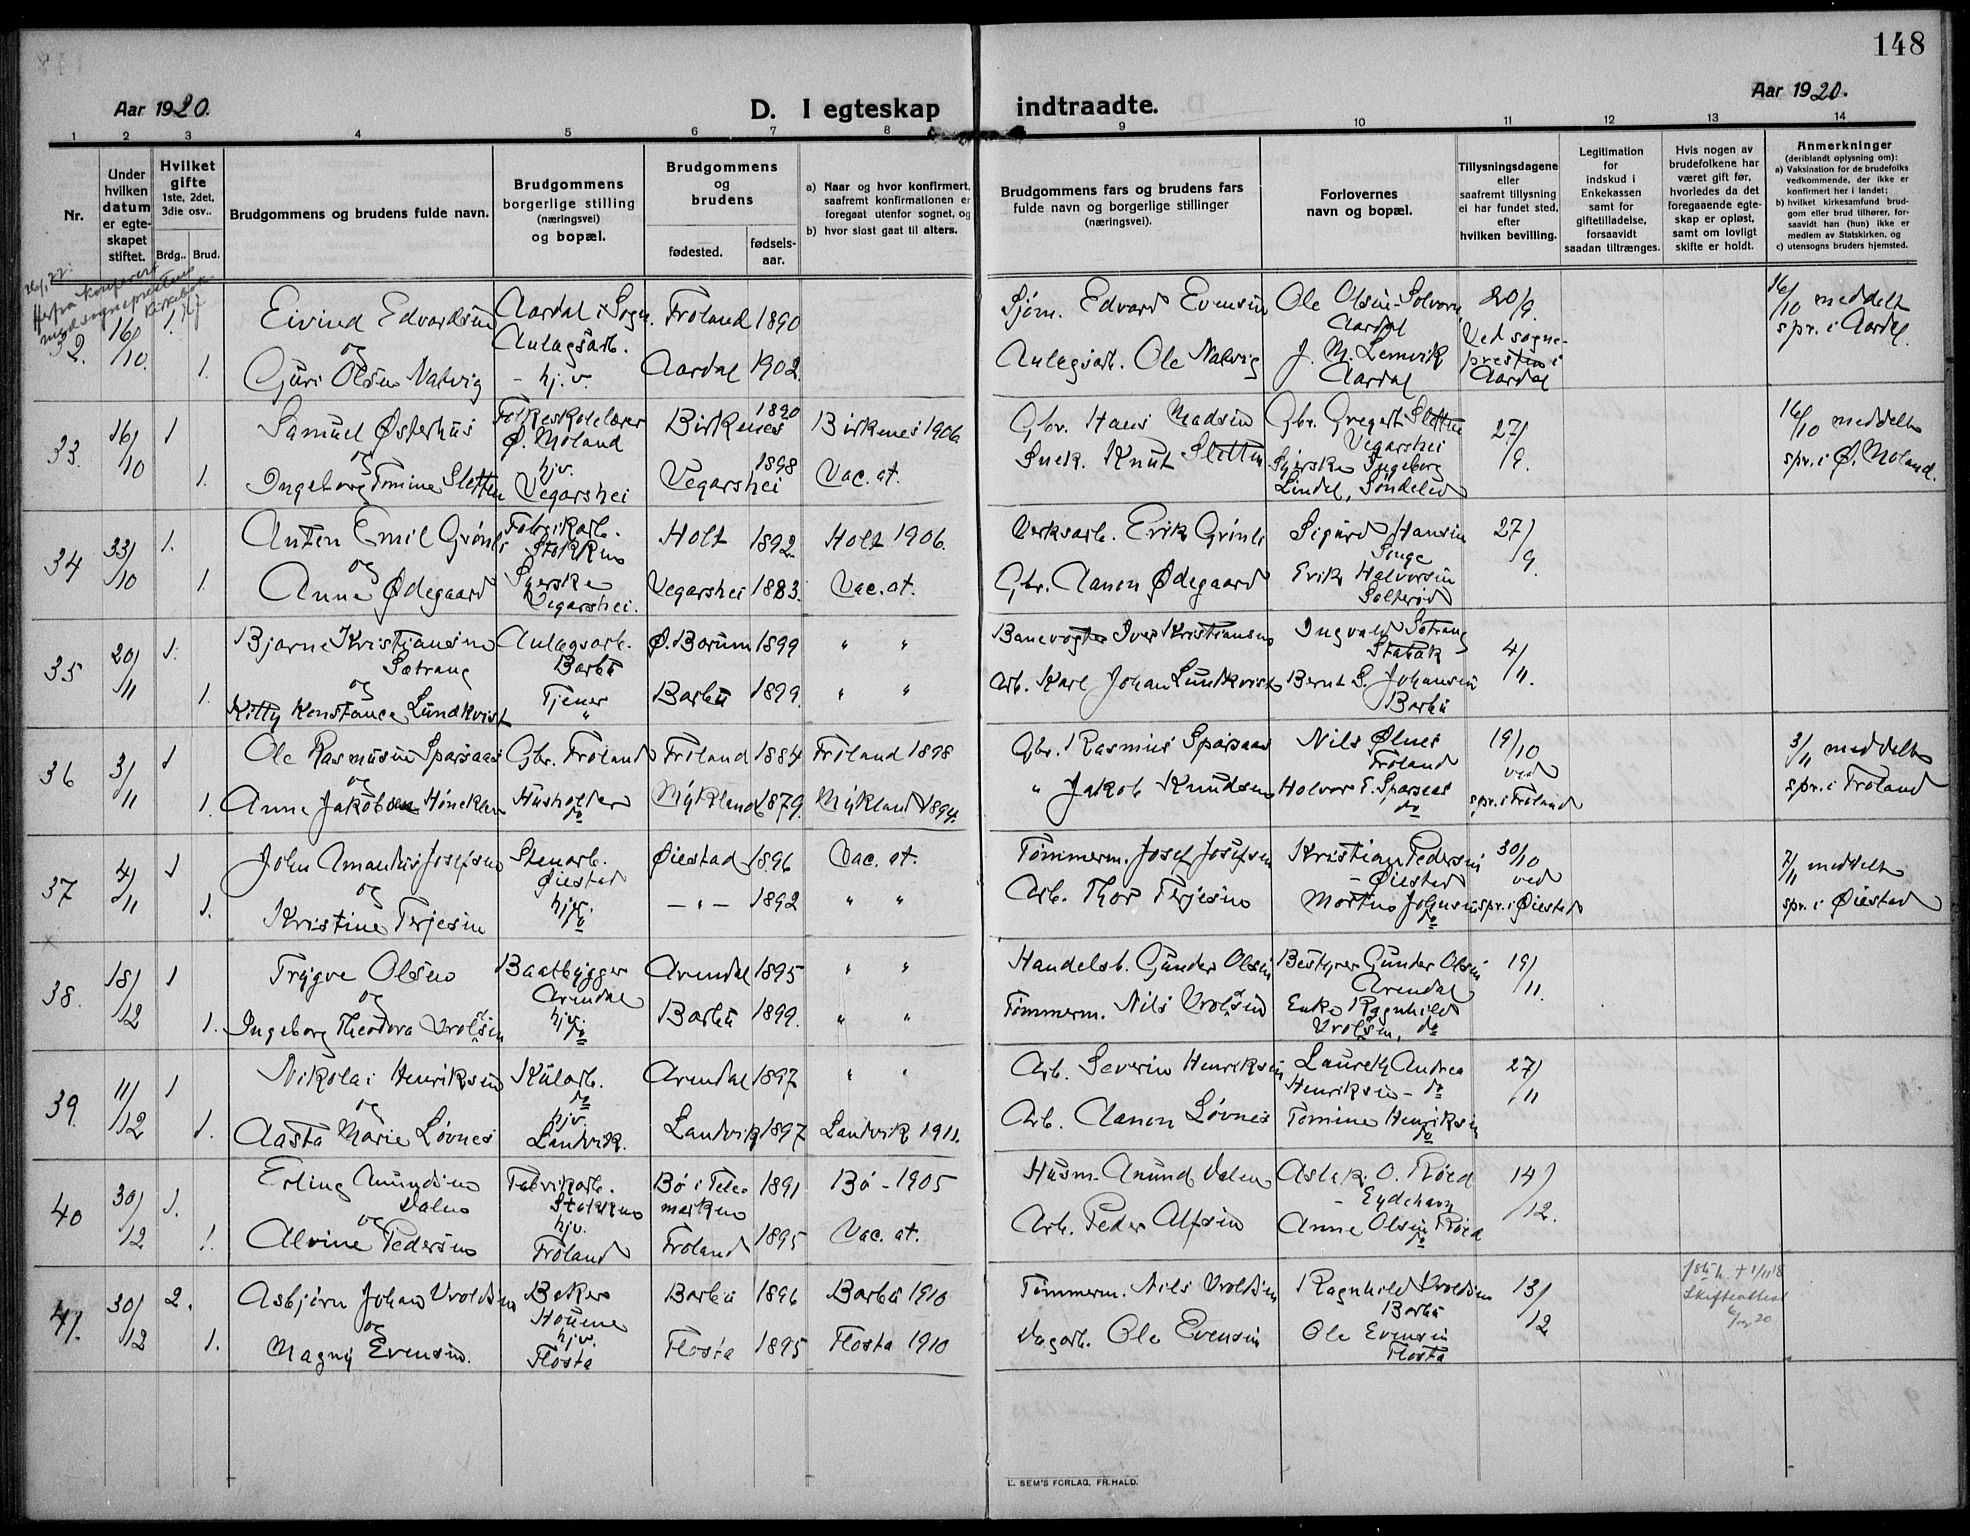 148
Aar 1920.
D. I egteskap indtraadte.
Aar 1920.
1 2 3 4 5 6 7 8 9 10 11 12 13 14
Nr.
Under hvilken datum er egteskapet stiftet.
Hvilket gifte
1ste, 2det, 3die osv..
Brdg.. Brud.
Brudgommens og brudens fulde navn.
Brudgommens borgerlige stilling (næringsvei) og bopæl.
Brudgommens og brudens
fødested. fødselsaar.
a) Naar og hvor konfirmert, saafremt konfirmationen er foregaat utenfor sognet, og
b) hvor sidst gaat til alters.
Brudgommens fars og brudens fars fulde navn og borgerlige stillinger (næringsvei).
Forlovernes navn og bopæl.
Tillysningsdagene eller saafremt tillysning ei har fundet sted, efter hvilken bevilling.
Legitimation for indskud i Enkekassen samt for giftetilladelse, forsaavidt saadan tiltrænges.
Hvis nogen av brudefolkene har været gift før, hvorledes da det foregaaende egteskap er opløst, samt om lovligt skifte er holdt.
Anmerkninger
(deriblandt oplysning om):
a) Vaksination for de brudefolks vedkommende, der ikke er konfirmert her i landet;
b) hvilket kirkesamfund brudgom eller brud tilhører, forsaavidt han (hun) ikke er medlem av Statskirken, og
c) utensogns bruders hjemsted.
Herfra konferert med sogneprestens kirkebok
32. 16/10. 1. Eivind Edvardsen Aardal i Sogn. Anlagsarb. Froland 1890 Sjøm. Edvard Evensen Ole Olsen Solvorn Aardal 20/9. 16/10 meddelt spr. i Aardal.
og
1. Guri Olsen Natvig - hj.v. Aardal 1902. Anlegsarb. Ole Natvig J. M. Lemvik Aardal Ved sognepresten i Aardal
33. 16/10 1 Samuel Østerhus Folkeskolelærer Ø. Moland Birkenes 1890 Birkenes 1906 Gbr. Hans Madsen Gbr. Gregert Sletten Vegarshei 27/9. 16/10 meddelt spr. i Ø. Moland.
og
1. Ingeborg Tomine Sletten hjv. Vegarshei Vegarshei 1898 Vac. at. Snek. Knut Sletten Syerske Ingeborg Lindal, Søndeled
34 33/10 1. Anton Emil Grønli Fabrikarb. Stokken Holt 1892 Holt 1906. Verksarb. Erik Grønli Sigurd Hansen Songe 27/9.
og
1. Anne Ødegaard Syerske Vegarshei. Vegarshei 1883. Vac. at. Gbr. Aanon Ødegaard Erik Halvorsen Salterød
35 20/11 1. Bjarne Kristiansen Sætrang Anlagsarb. Barbu Ø. Borum 1899 " " Banevogter Iver Kristiansen Ingvald Sætrang Stabæk 4/11.
og
1. Kitty Konstance Lundkvist Tjener " Barbu 1899. " " Arb. Karl Johan Lundkvist Bernt S. Johansen Barbu
36 3/11 1 Ole Rasmusen Sparsaas Gbr. Froland Froland 1884 Froland 1898 Gbr. Rasmus Sparsaas Nils Ølnes Froland 19/10 ved spr. i Froland 3/11 meddelt spr. i Froland
og
1. Anne Jakobsen Høneklev Husholder do Mykland 1879. Mykland 1894. " Jakob Knudsen Halvor E. Sparsaas do
37 4/11 1 John Amandus Josefsen Stenarb. Øiestad Øiestad 1896 Vac. at. Tømmerm. Josef Josefsen Kristian Pedersen - Øiestad 30/10 ved spr. i Øiestad 7/11 meddelt spr. i Øiestad
og
1. Kristine Terjesen hjv. do - " - 1892 " " Arb. Thor Terjesen Morten Johnsen do
38. 18/12 1 Trygve Olsen Baatbygger Arendal Arendal 1895 " " Handelsb. Gunder Olsen Bestyrer Gunder Olsen Arendal 19/11.
og
1. Ingeborg Theodora Vrolsen hjv. do Barbu 1899. " " Tømmerm. Nils Vrolsen Enke Ragnhild Vrolsen, do
39. 11/12 1 Nikolai Henriksen Kularb. do Arendal 1897 " " Arb. Severin Henriksen Laureth Andrea Henriksen - do 27/11
og
1. Aasta Marie Løvnes hjv. Landvik. Landvik 1897 Landvik 1911. Arb. Aanon Løvnes Tomine Henriksen do
40 30/12 1. Erling Anundsen Dalen Fabrikarb. Stokken Bø i Telemarken 1891 Bø - 1905 Husm. Anund Dalen Aslak O. Røed - Eydehavn 14/12.
og
1. Alvine Pedersen hjv. Froland Froland 1895 Vac. at. Arb. Peder Alfsen Anne Olsen Røed do
41. 30/12 2. Asbjørn Johan Vroldsen Baker Houene Barbu 1896 Barbu 1910 Tømmerm. Nils Vroldsen Ragnhild Vroldsen Barbu 13/12 Skifteattest
og
1. Magny Evensen. hjv. Flosta Flosta 1895 Flosta 1910 Dagarb. Ole Evensen Ole Evensen Flosta
L. SEM'S FORLAG, FR.HALD.